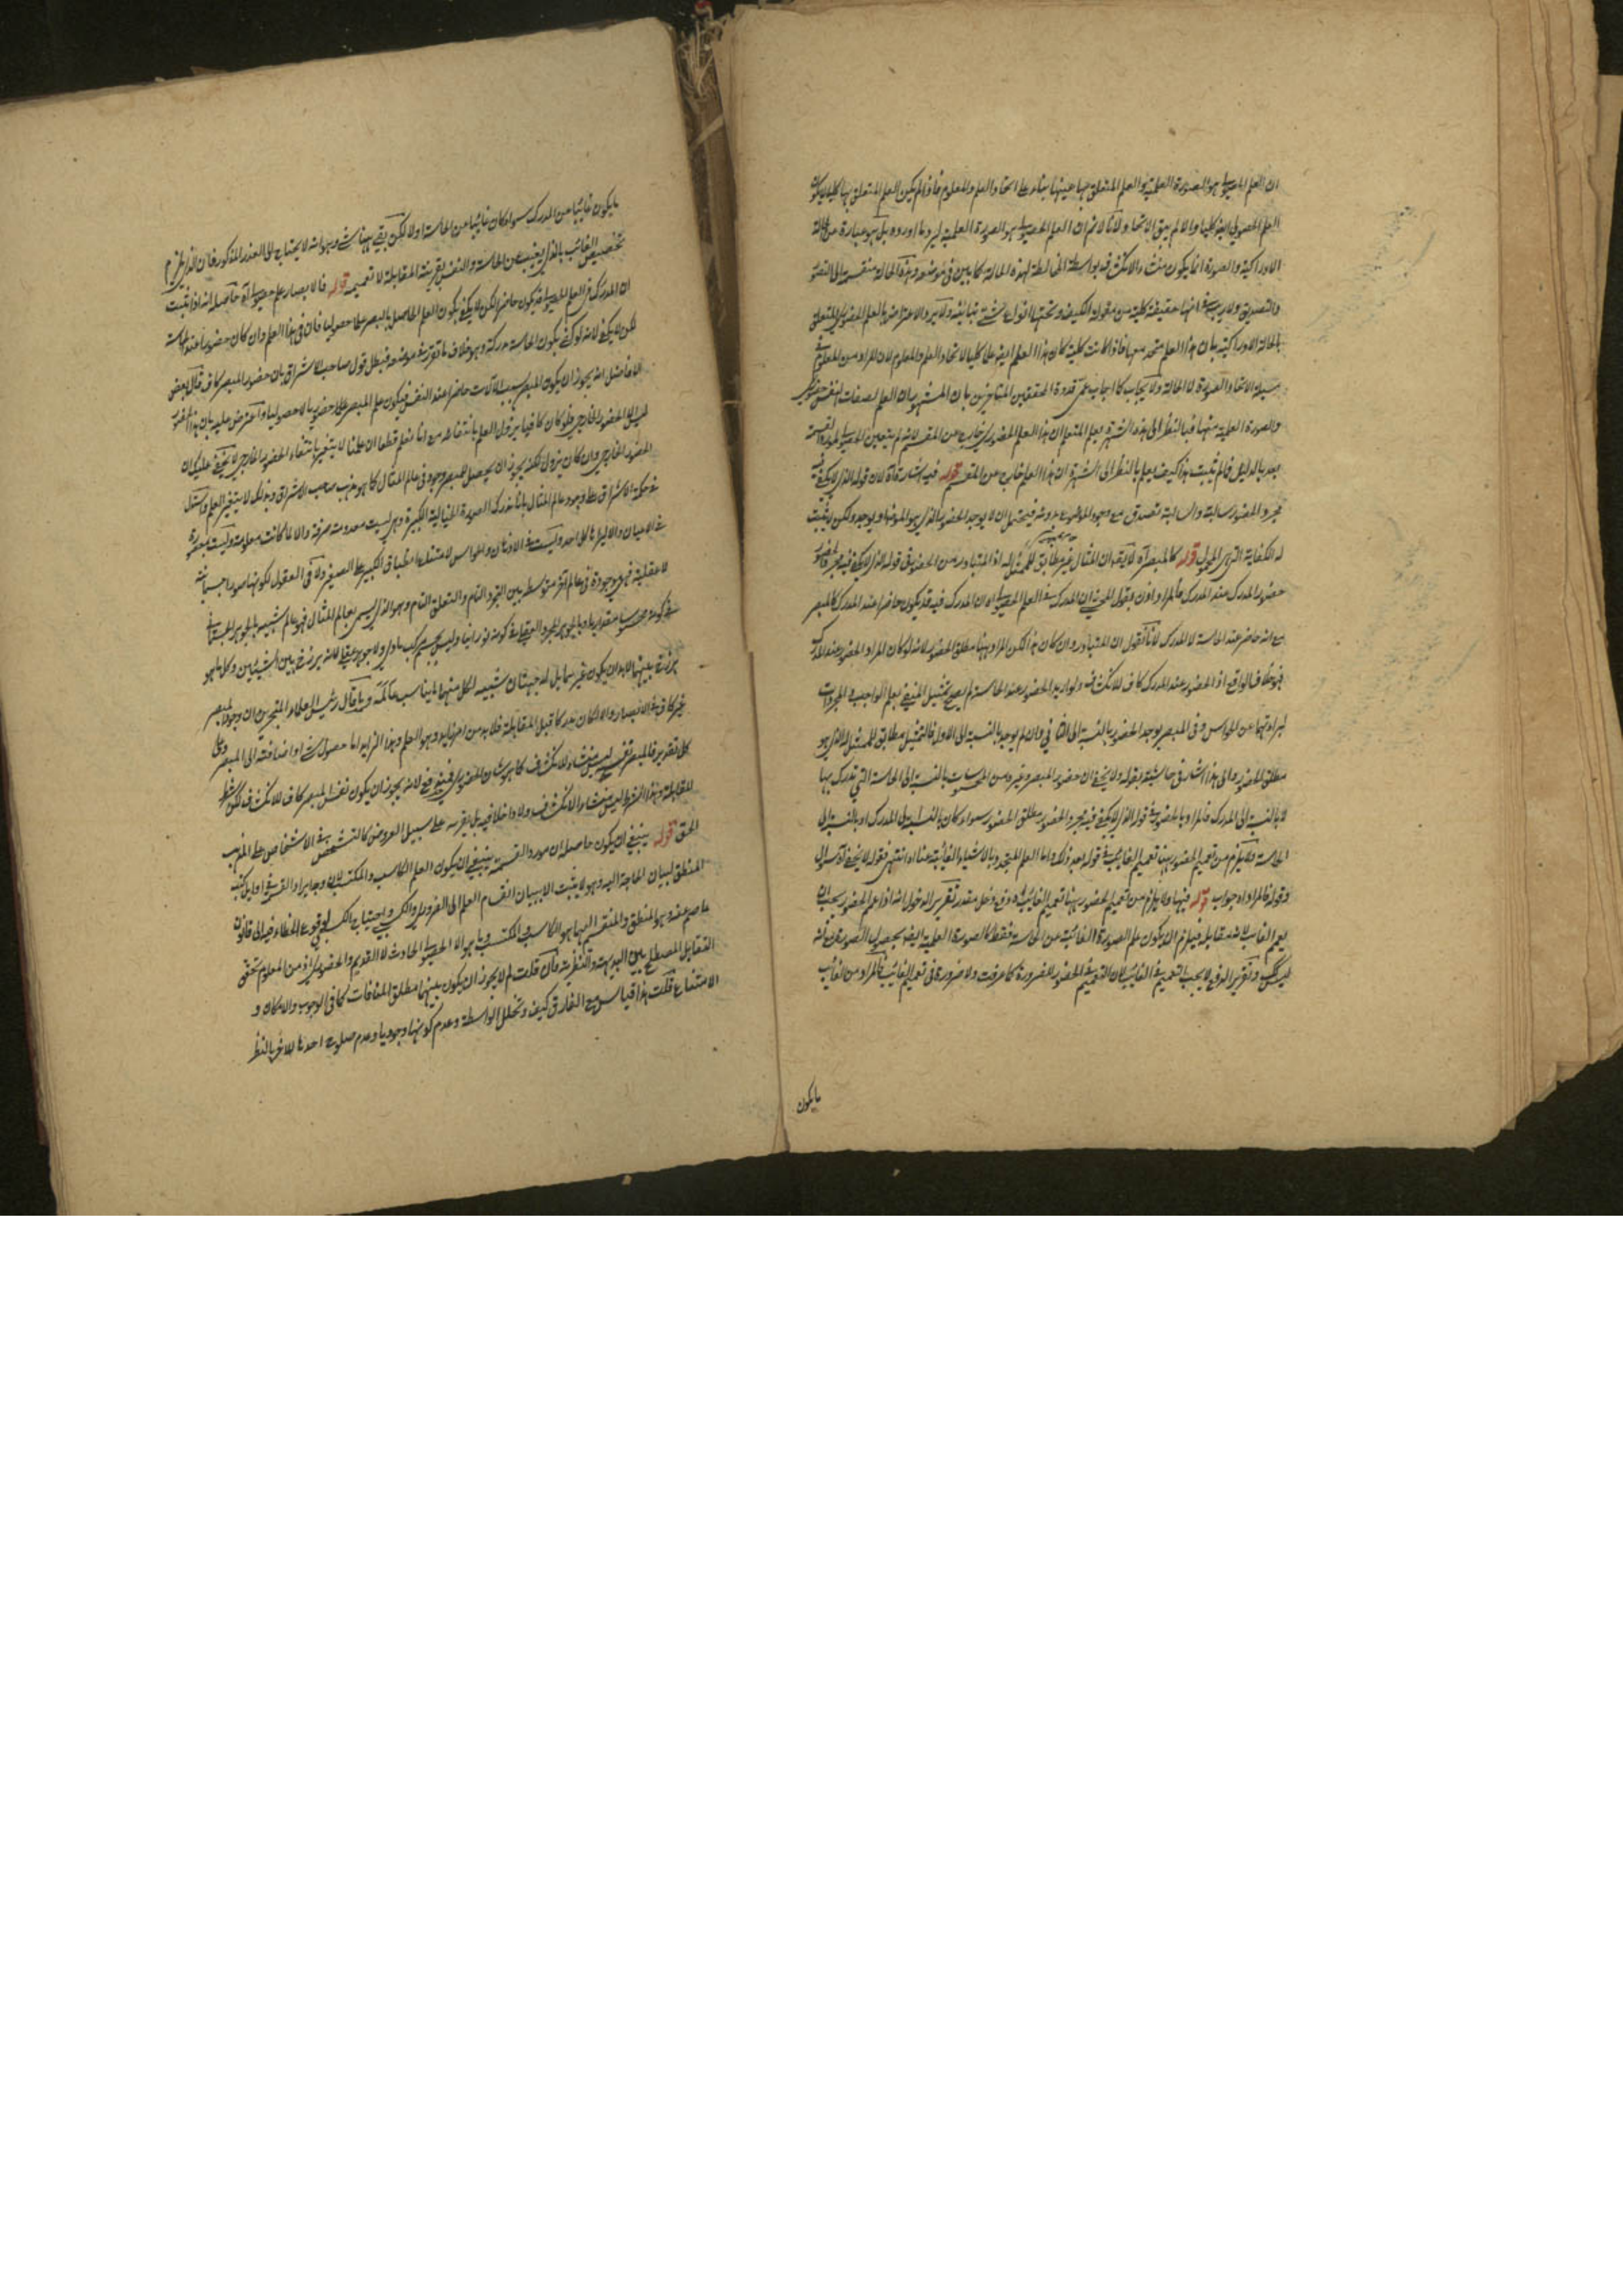 ان العلم الحصولي هو الصورة العلمية والعلم المتعلق بها عينها بناء على اتحاد العلم والمعلوم فاذا لم يكن العلم المتعلق بها كليا لا يكون
العلم الحصولي ايضا كليا والا لم يبق الاتحاد ولانا لا نم ان العلم الحصولي هو الصورة العلمية بل هو عبارة عن الحالة
الادراكية والصورة انما يكون منشاء الانكشاف بواسطة لهذه الحالة كما بين في موضعه وهذه الحالة منقسمة الى التصور
والتصديق ولا ريب في انها حقيقة كلية من مقولة الكيف وتحتها
بالحالة الادراكية بان هذا العلم متحد معها فاذا كانت كلية كان هذا العلم ايضا كليا لاتحاد العلم والمعلوم لان المراد من المعلوم في
مسئلة الاتحاد الصورة لا الحالة ولا يجاب كما اجاب عمى قدوة المحققين المتاخرين بان المشهور ان العلم بصفات النفس حضوري
والصورة العلمية منها فبالنظر الى هذه الشهرة يعلم المتعلم ان هذا العلم الحضوري خارج عن المقسم لانه لم يتعين الحصولي لمورد القسمة
بعد بالدليل فما لم يثبت هذا كيف يعلم بالنظر الى الشهرة ان هذا العلم خارج عن المقسم قوله فيه اشارة آه لان قوله الذي لا يكفي فيه
مجرد الحضور سالبة والسالبة تصدق مع وجود الموضوع وبدونه فيحتمل ان لا يوجد الحضور ويوجد ولكن لا يثبت
له الكفاية التي هي المحمول قوله كالمبصر آه لا يقال ان المثال غير مطابق للممثل له اذ المتبادر من الحضور في قوله الذي لا يكفي فيه مجرد الحضور
حضور المدرك عند المدرك فالمراد اذن بقول المحشي ان المدرك في العلم الحصولي اه ان المدرك فيه قد يكون حاضرا عند المدرك كالمبصر
مع انه حاضر عند الحاسة لا المدرك لانا نقول ان المتبادر وان كان هذا لكن المراد ههنا مطلق الحضور لانه لو كان المراد الحضور عند المدرك
فهو خلاف الواقع اذ الحضور عند المدرك كاف للانكشاف ولو اريد الحضور عند الحاسة لم يصح تمثيل المنفي بعلم الواجب والمجردات
لبراءتهما عن الحواس وفي المبصر يوجد الحضور بالنسبة الى الثاني وان لم يوجد بالنسبة الى الاول فالتمثيل مطابق للممثل له الذي هو
مطلق الحضور والى هذا اشار في حاشيته بقوله ولا يخفى ان حضور المبصر وغيره من المحسوسات بالنسبة الى الحاسة التي تدرك بها
لا بالنسبة الى المدرك فالمراد بالحضور في قوله الذي لا يكفي فيه مجرد الحضور مطلق الحضور سواء كان بالنسبة الى المدرك او بالنسبة الى
الحاسة ولا يلزم من تعميم الحضور ههنا تعميم الغائب في قوله بعد ذلك واما العلم المتجدد بالاشياء الغائبة عنا اه انتهى فقوله لا يخفى آه سوال
وقوله فالمراد اه جواب قوله فيها ولا يلزم من تعميم الحضور ههنا تعميم الغائب دفع دخل مقدر تقرير الدخل انه اذا عمم الحضور يجب ان
يعمم الغائب لانه مقابله فيلزم ان يكون علم الصورة الغائبة عن الحاسة فقط كالصورة العلمية ايضا بحصول الصورة مع انه
ليس كك وتقرير الدفع لا يجب التعميم في الغائب لان التعميم في الحضور للضرورة كما عرفت ولا ضرورة في تعميم الغائب فالمراد من الغائب
ما يكون
ما يكون غائبا عن المدرك سواء كان غائبا عن الحاسة اولا لكن بقي ههنا شيء وهو انه لا يحتاج الى العذر المذكور
تخصيص الغائب بالذي يغيب عن الحاسة والنفس بقرينة المقابلة لا تعميمه قوله فالابصار علم حصولي آه حاصله انه اذا ثبت
ان المدرك في العلم الحصولي قد يكون حاضرا لكن لا يكفي يكون العلم الحاصل بالبصر علما حصوليا فان في هذا العلم وان كان حضور عند الحاسة
لكن لا يكفي لانه لو كفى يكون الحاسة مدركة وهو خلاف ما تقرر في موضعه فبطل قول صاحب الاشراق بان حضور المبصر كاف قال بعض
الافاضل انه يجوز ان يكون المبصر بسبب الآلات حاضرا عند النفس فيكون علم المبصر علما حضوريا لا حصوليا واعترض عليه بان هذا الحضور
ليس الا الحضور الخارجي ولو كان كافيا يزول العلم بانتفائه مع انا نعلم قطعا ان علمنا لا يتغير بانتفاء الحضور الخارجي لا يخفى عليك ان
الحضور الخارجي وان كان يزول لكنه يجوز ان يحصل للمبصر وجود في عالم المثال كما هو مذهب صاحب الاشراق وبذلك لا يتغير العلم واستدل
في حكمة الاشراق على وجود عالم المثال بانا ندرك الصورة الخيالية الكبيرة وهي ليست معدومة صرفة والا لما كانت معلومة وليست بصورة
في الاعيان والا ليراها كل احد وليست في الاذهان والحواس لامتناع انطباق الكبير على الصغير ولا في العقول لكونها صورا جسمانية
لا عقلية فهي موجودة في عالم آخر متوسط بين التجرد التام والتعلق التام وهو الذي يسمى بعالم المثال فهو عالم شبيه بالجوهر الجسماني
في كونه محسوسا مقداريا وبالجوهر المجرد العقلي في كونه نورانيا وليس بجسم مركب مادي ولا جوهر عقلي لانه برزخ بين الشيئين وكل ما هو
برزخ بينهما لابد ان يكون غيرهما بل له جهتان شبيه لكل منهما ما يناسب عالمه وما قال رئيس العلماء المتبحرين ان وجود المبصر
غير كاف في الابصار والا لكان مدركا قبل المقابلة فلابد من امر زايد وهو العلم وهذا الزايد اما حصول شيء او اضافته الى المبصر وعلى
كل تقدير فالمبصر نفسه ليس منشاء للانكشاف كما هو شان الحضوري ففيه لانه يجوز ان يكون نفس المبصر كاف للانكشاف لكن بشرط
المقابلة وهذا الشرط ليس منشاء الانكشاف ولا داخلا فيه بل يعرضه على سبيل العروض كالتشخص في الاشخاص على المذهب
الحق قوله ينبغي ان يكون حاصله ان مورد القسمة ينبغي ان يكون العلم الكاسب والمكتسب لان
المنطق لبيان الحاجة اليه وهو لا يثبت الا ببيان انقسام العلم الى الضروري والكسبي واحتياج الكسبي لوقوع الخطاء فيه الى قانون
عاصم عنه وهو المنطق والمنقسم اليهما هو الكاسب والمكتسب وما هو الا الحصولي الحادث لا القديم والحضوري اذ من المعلوم تحقق
التقابل المصطلح بين البديهية والنظرية فان قلت لم لا يجوز ان يكون بينهما مطلق المنافات كما في الوجوب والامكان و
الامتناع قلت هذا قياس مع الفارق كيف وتخلل الواسطة وعدم كونهما وجوديا وعدم صلوح احدهما للآخر بالنظر